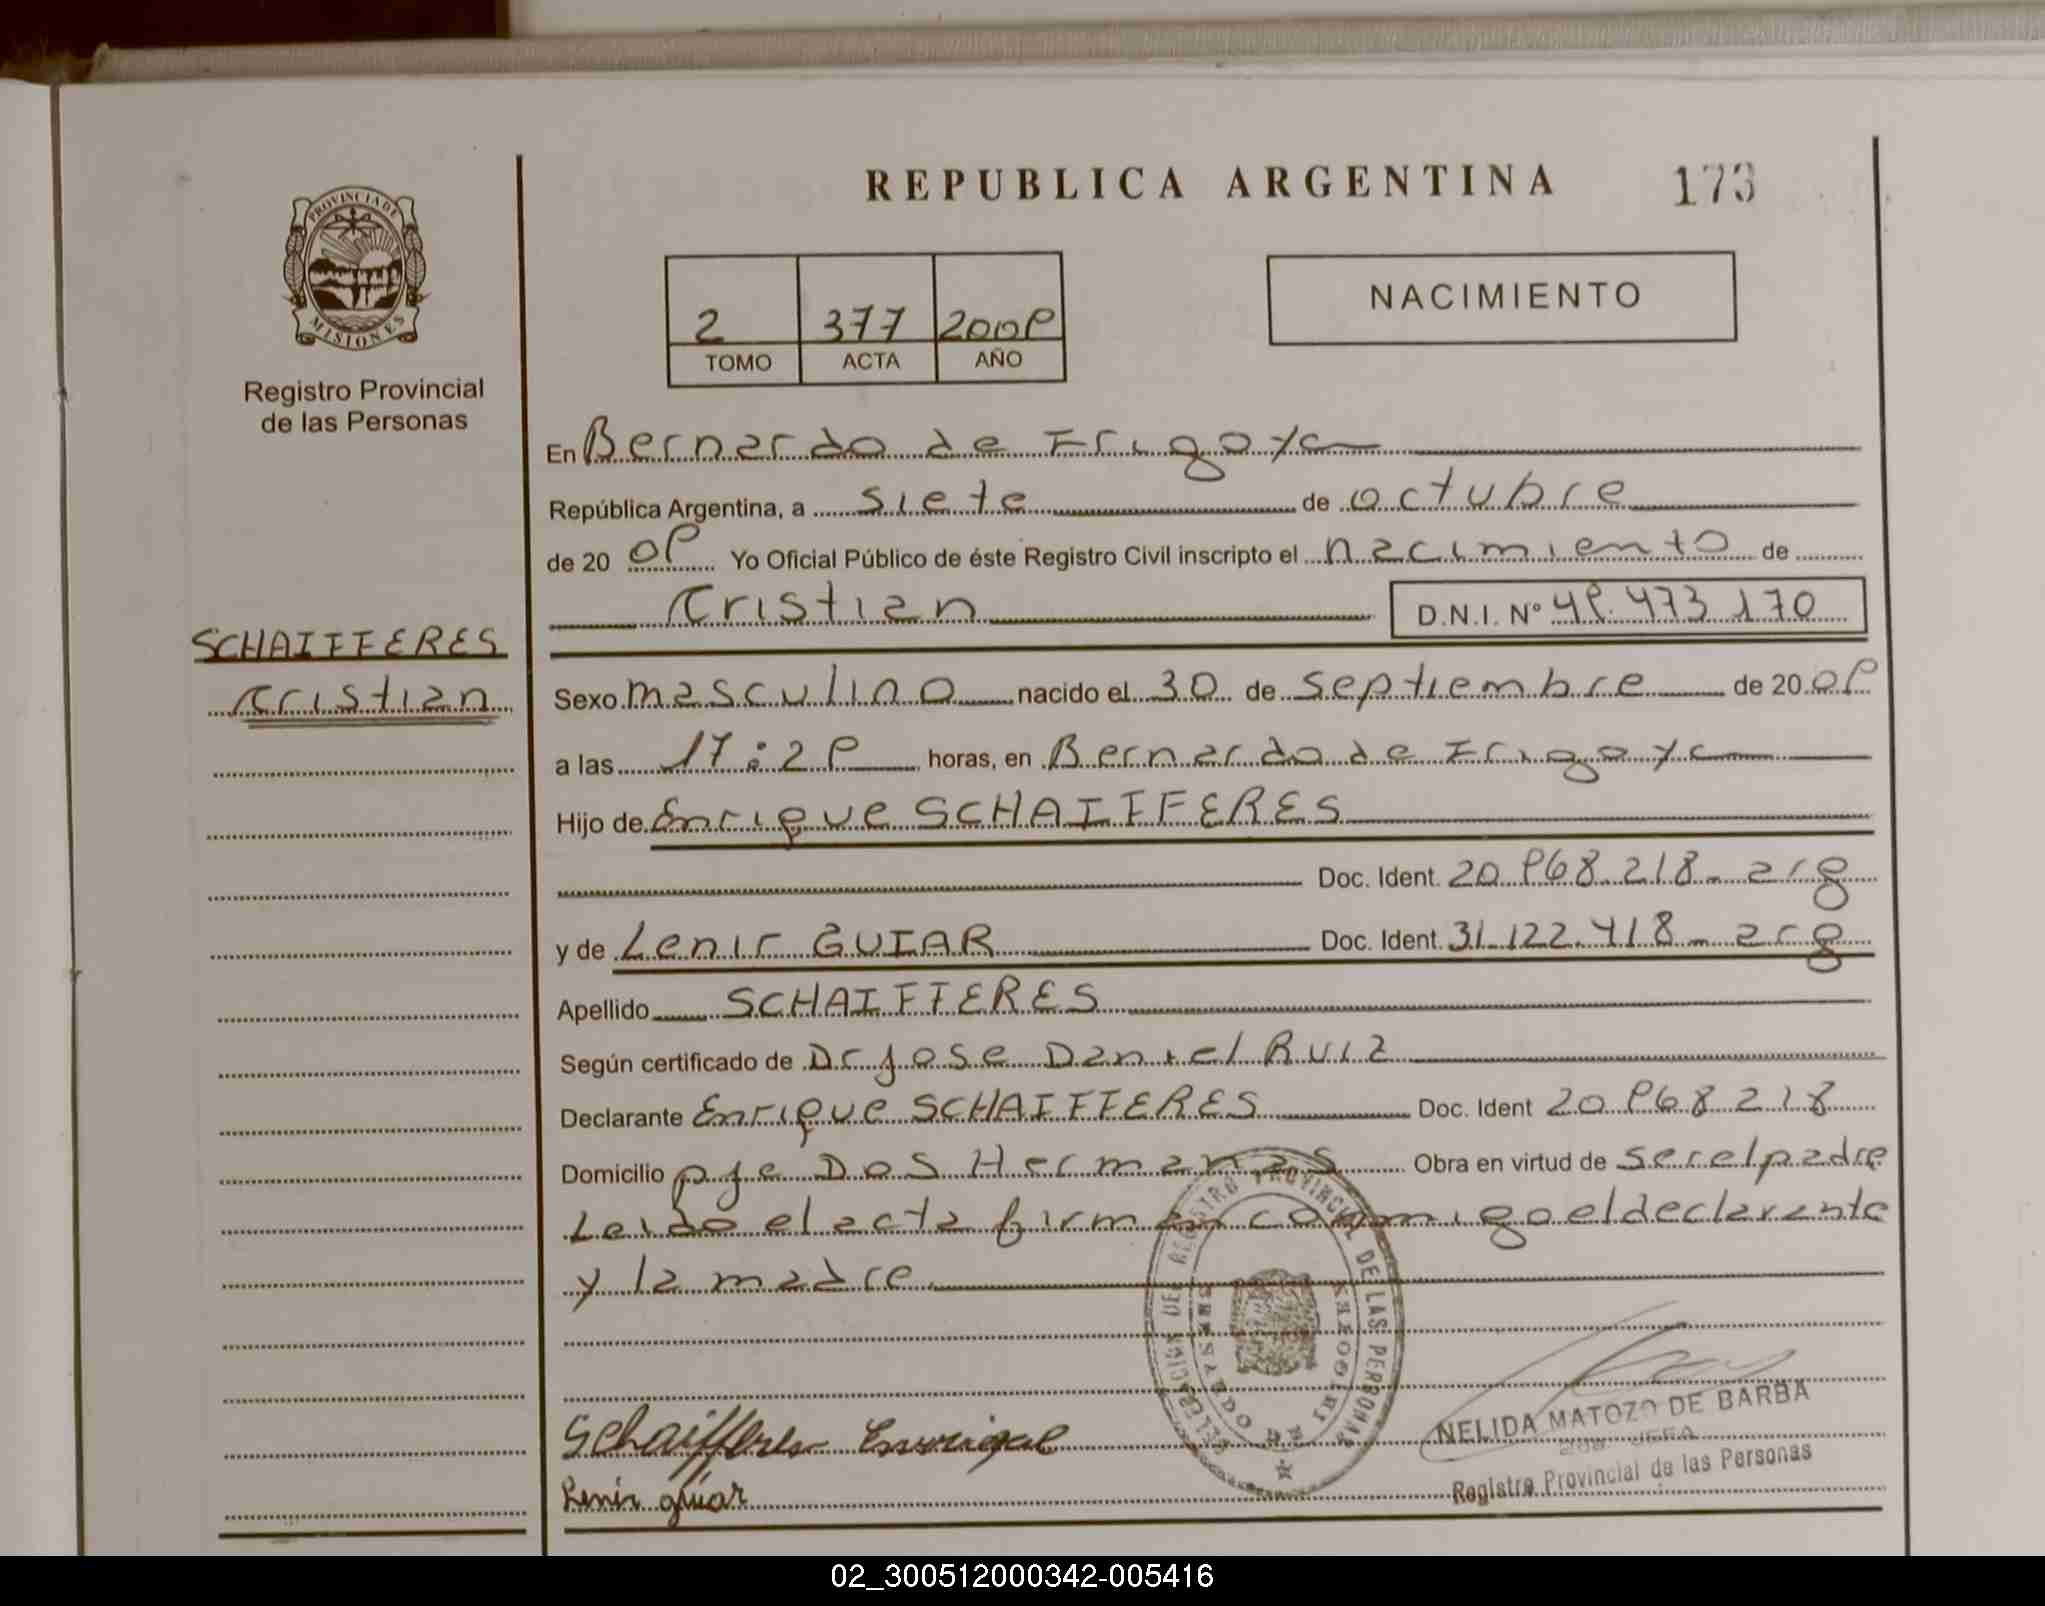 REPUBLICA ARGENTINA 173
PROVINCIA DE MISIONES
Registro Provincial
de las Personas
2 377 2009
TOMO ACTA AÑO
NACIMIENTO
En Bernardo de Irigoyen
República Argentina, a siete de octubre
de 20 09 Yo Oficial Público de éste Registro Civil inscripto el nacimiento de
Cristian D.N.I. Nº 49.473.170
SCHAIFFERES
Cristian
Sexo masculino nacido el 30 de septiembre de 20 09
a las 17:29 horas, en Bernardo de Irigoyen
Hijo de Enrique SCHAIFFERES
Doc. Ident. 20.968.218 - arg
y de Lenir GUIAR Doc. Ident. 31.122.418 - arg
Apellido SCHAIFFERES
Según certificado de Dr Jose Daniel Ruiz
Declarante Enrique SCHAIFFERES Doc. Ident 20.968.218
Domicilio pje Dos Hermanas Obra en virtud de ser el padre
Leido el acta firman conmigo el declarante
y la madre
DELEGACION DEL REGISTRO PROVINCIAL DE LAS PERSONAS
BERNARDO IRIGOYEN
Schaifferes Enrique
Lenir guiar
NELIDA MATOZO DE BARBA
SUB JEFA
Registro Provincial de las Personas
02_300512000342-005416